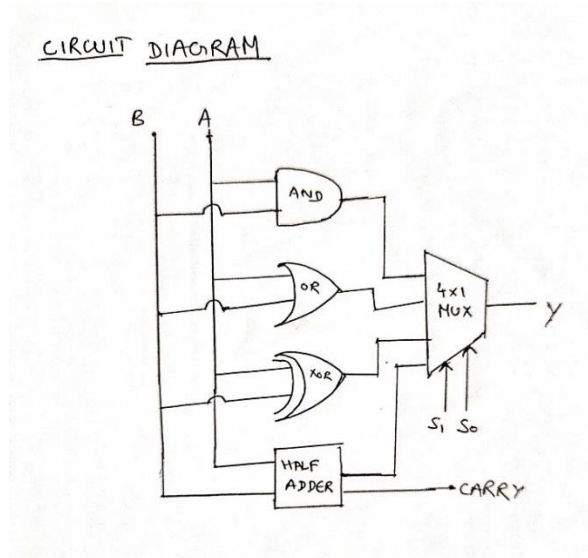 CIRCUIT DIAGRAM
B A
AND
OR
4x1
MUX
Y
XOR
S1 S0
HALF
ADDER
CARRY